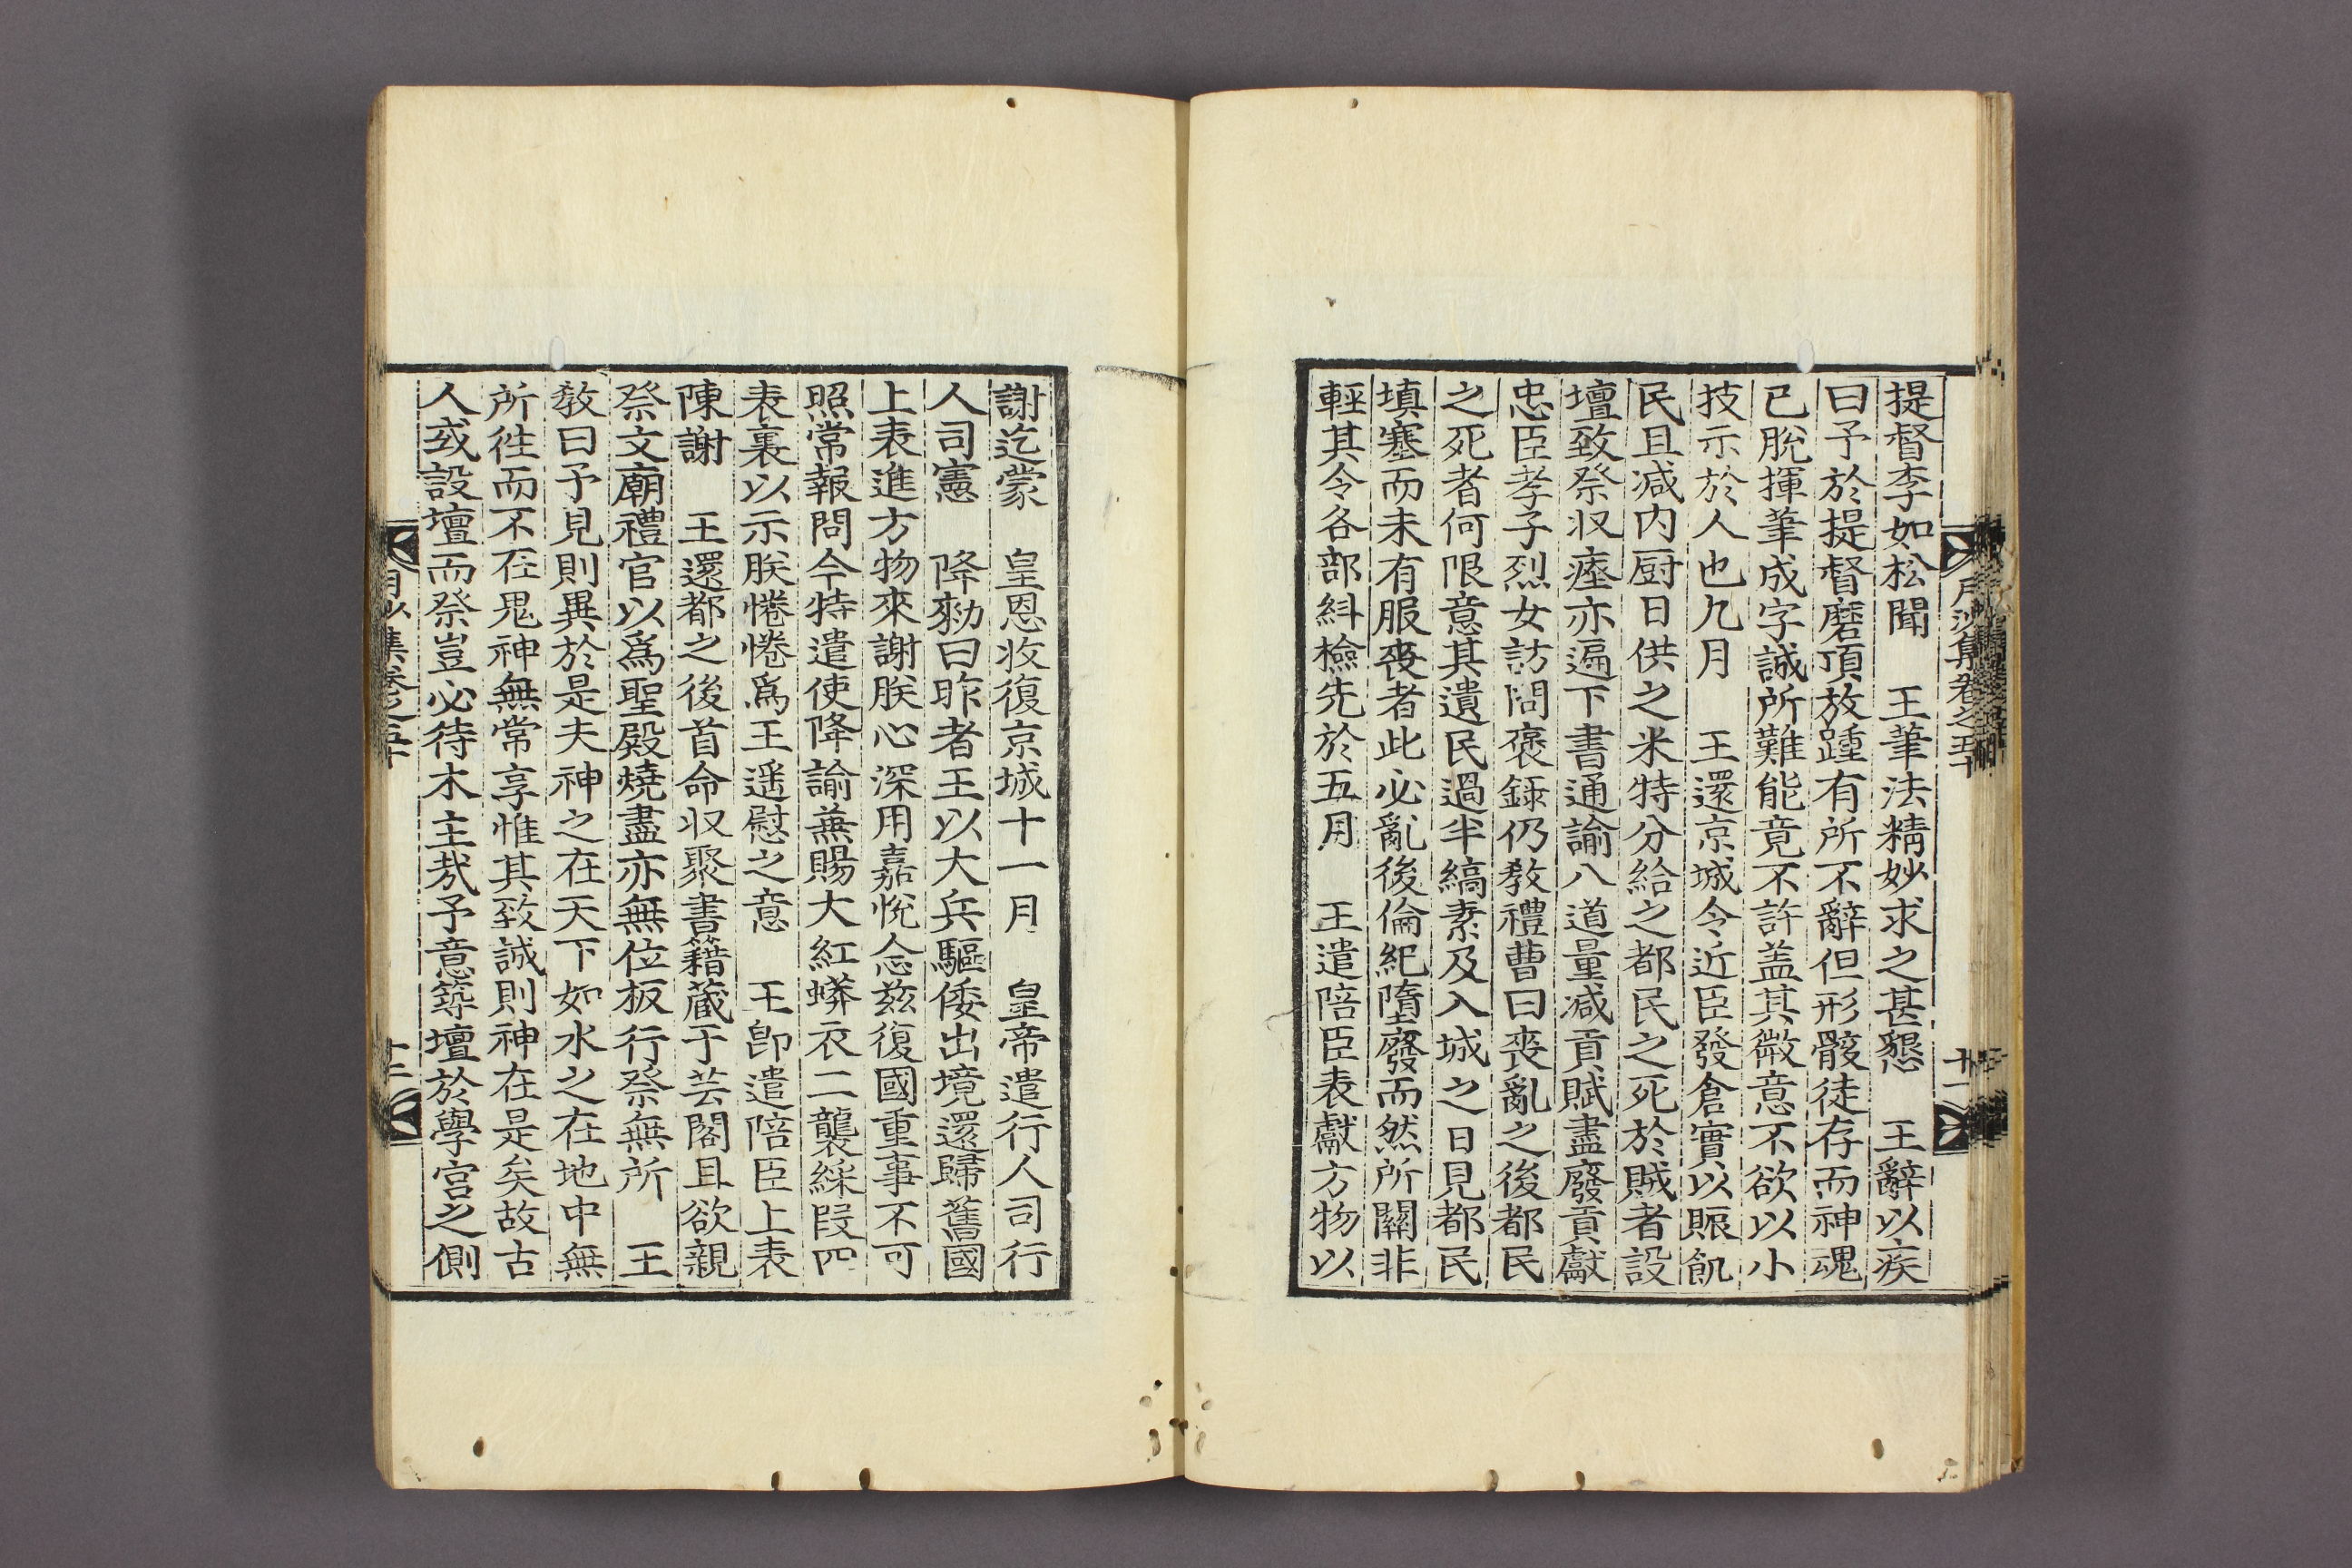 提督李如松聞　王筆法精妙求之甚懇　王辭以疾
曰予於提督磨頂放踵有所不辭但形骸徒存而神魂
已脫揮筆成字誠所難能竟不許盖其微意不欲以小
技示於人也九月　王還京城令近臣發倉實以賑飢
民且减内厨日供之米特分給之都民之死於賊者設
壇致祭収瘞亦遍下書通諭八道量减貢賦盡廢貢獻
忠臣孝子烈女訪問褒錄仍敎禮曹曰喪亂之後都民
之死者何限意其遺民過半縞素及入城之日見都民
填塞而未有服喪者此必亂後倫紀墮廢而然所關非
輕其令各部糾檢先於五月　王遣陪臣表獻方物以
謝迄蒙　皇恩收復京城十一月　皇帝遣行人司行
人司憲　降勑曰昨者王以大兵驅倭出境還歸舊國
上表進方物來謝朕心深用嘉悅念玆復國重事不可
照常報問今特遣使降諭兼賜大紅蟒衣二襲綵段四
表裏以示朕惓惓爲王遥慰之意　王卽遣陪臣上表
陳謝　王還都之後首命収聚書籍藏于芸閣且欲親
祭文廟禮官以爲聖殿燒盡亦無位板行祭無所　王
敎曰予見則異於是夫神之在天下如水之在地中無
所徃而不在鬼神無常享惟其致誠則神在是矣故古
人或設壇而祭豈必待木主㢤予意築壇於學宮之側
月沙集卷之五十
十一
月沙集卷之五十
十二